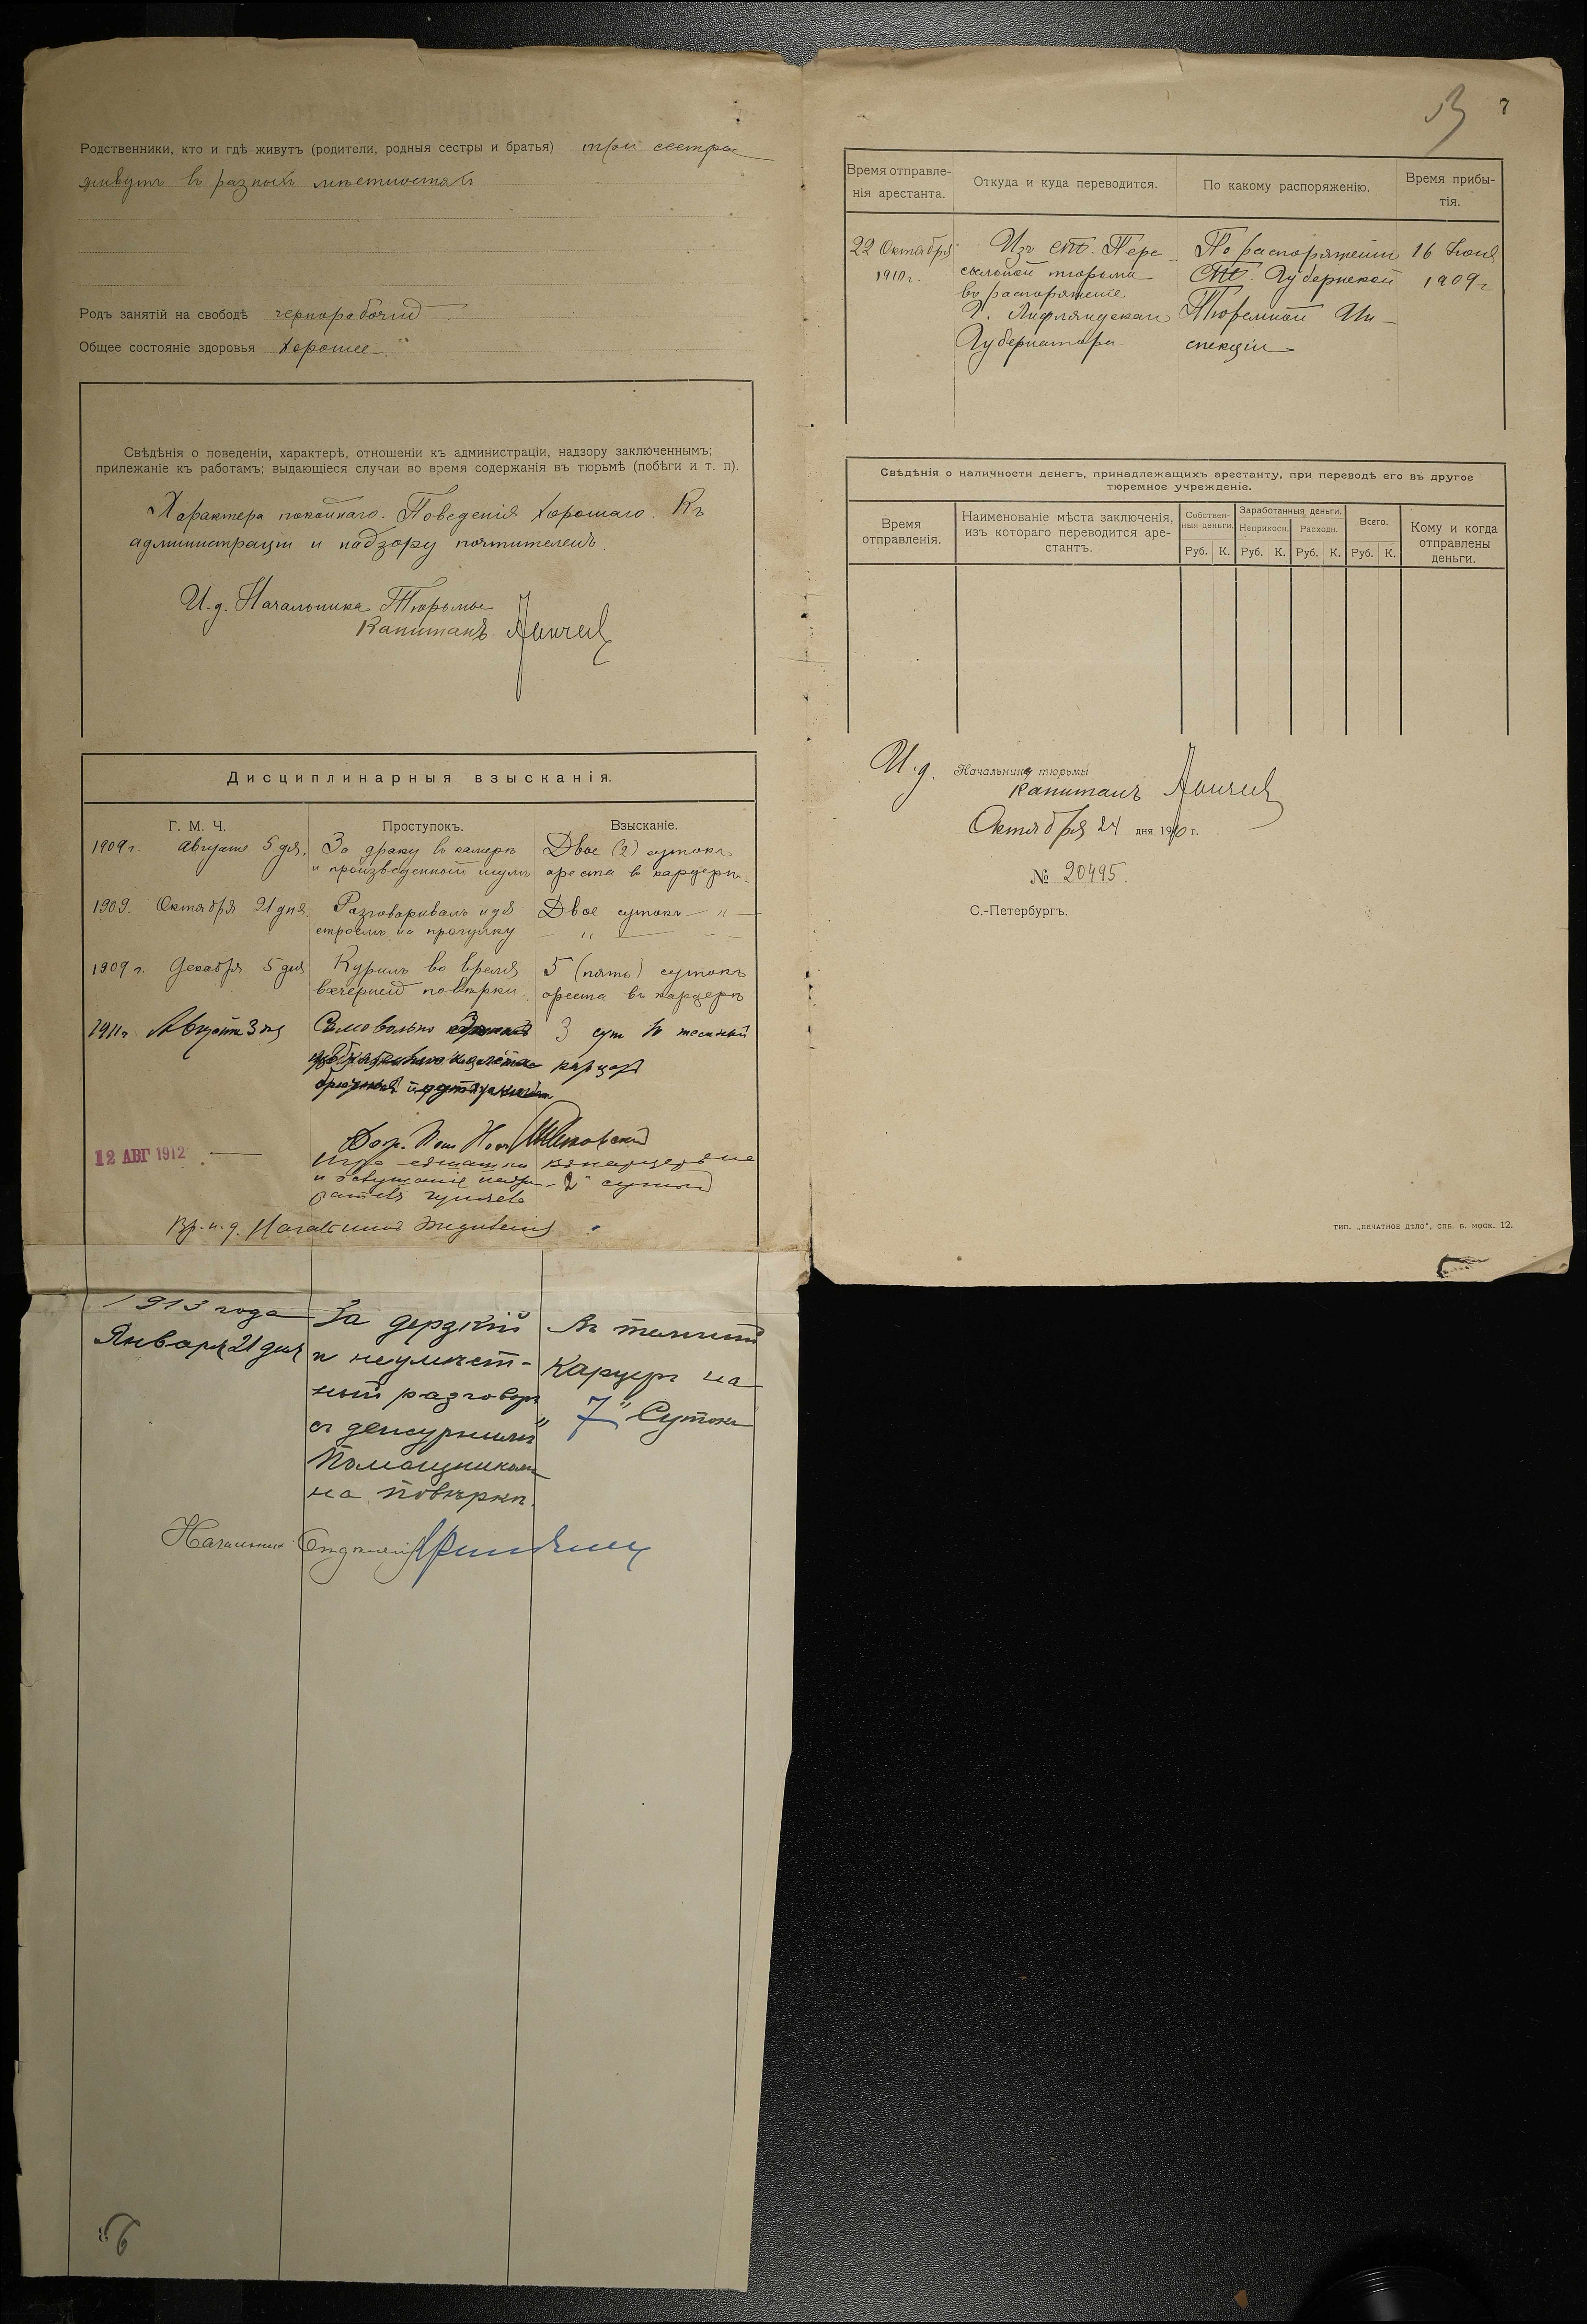 Родственники, кто и гдѣ живутъ (родители, родныя сестры и братья) три сестры
живутъ въ разныхъ мѣстностяхъ
Родъ занятій на свободѣ чернорабочій
Общее состояніе здоровья хорошее
Свѣдѣнія о поведеніи, характерѣ, отношеніи къ администраціи, надзору заключеннымъ;
прилежаніе къ работамъ; выдающіеся случаи во время содержанія въ тюрьмѣ (побѣги и т. п).
Характера покойнаго. Поведенія хорошаго. Къ
администраціи и надзору почтителенъ.
И. д. Начальника Тюрьмы
Капитанъ
Дисциплинарныя взысканія.
Г. М. Ч. Проступокъ. Взысканіе.
1909 г. Августа 5 дня. За драку въ камерѣ Двое (2) сутокъ
и произведенный шумъ ареста въ карцерѣ.
1909. Октября 21 дня. Разговаривалъ идя Двое сутокъ — " —
строемъ на прогулку — " —
1909 г. Декабря 5 дня Курилъ во время 5 (пять) сутокъ
вечерней повѣрки. ареста въ карцерѣ
1911 г. Августа 3 дня Самовольно 3 сут въ темный
карцеръ
12 АВГ 1912 —
2" сутокъ
Вр. и. д. Начальника
1913 года За дерзкій Въ темный
Января 21 дня и неумѣст- Карцеръ на
ный разговоръ 7" Сутокъ
съ дежурнымъ
Помощникомъ
на повѣркѣ.
Начальникъ Отдѣленія
7
Время отправле- Откуда и куда переводится. По какому распоряженію. Время прибы-
нія арестанта. тія.
22 Октября Изъ СПБ. Пере- По распоряженію 16 Іюня
1910 г. сыльной тюрьмы СПБ. Губернской 1909 г
въ распоряженіе Тюремной Ин-
Г. Лифляндскаго спекціи
Губернатора
Свѣдѣнія о наличности денегъ, принадлежащихъ арестанту, при переводѣ его въ другое
тюремное учрежденіе.
Время отправленія. Наименованіе мѣста заключенія, изъ котораго переводится аре-стантъ. Собствен-ныя деньги. Заработанныя деньги. Неприкосн. Расходн. Всего. Кому и когда отправлены деньги.
Руб. К. Руб. К. Руб. К. Руб. К.
И. д. Начальника тюрьмы
Капитанъ
Октября 24 дня 1910 г.
№ 20495.
С.-Петербургъ.
ТИП. „ПЕЧАТНОЕ ДѢЛО", СПБ. Б. МОСК. 12.